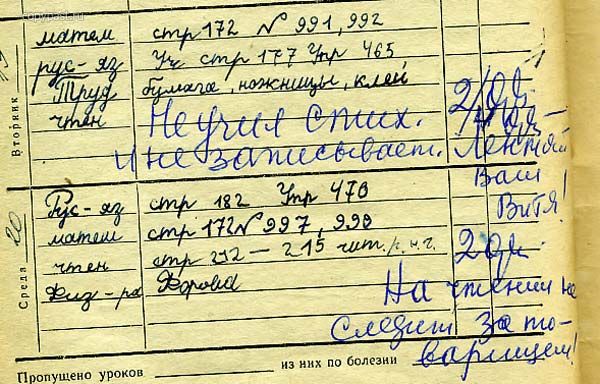 copypast.ru
матем стр 172 № 991, 992
рус-яз Уч стр 177 Упр 465
Труд бумага, ножницы, клей
чтен Не учил стих. 2/од.
и не записывает. Лентяй
Ваш
Витя!
Вторник
Рус-яз стр 182 Упр 470
матем стр 172 № 997, 998
чтен стр 212 – 215 чит.
Физ-ра Форма
Среда 20
На чтении не
следит за то-
варищем!
Пропущено уроков из них по болезни